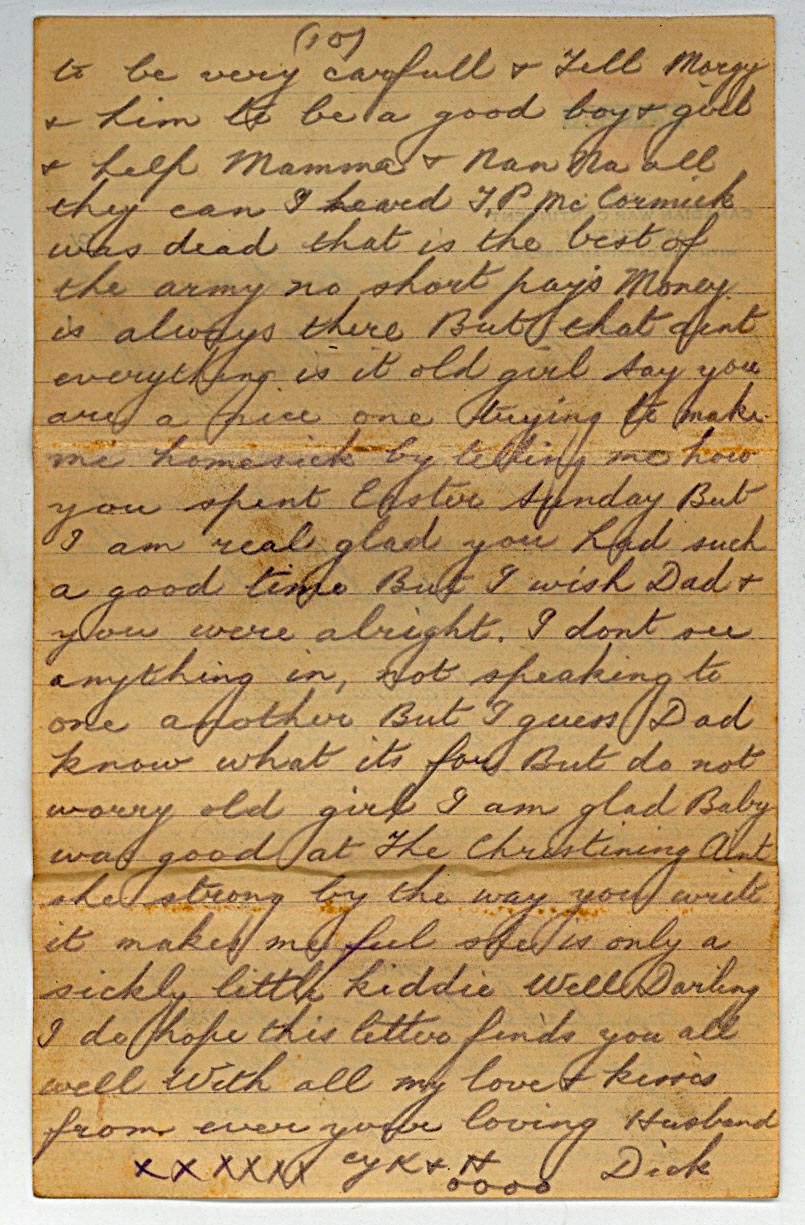 (10)
to be very carfull & Tell Morgy
& him to be a good boy & girl
& help Mamma & Nan Na all
they can I heard T,P Mc Cormick
was dead that is the best of
the army no short pay's Money
is always there But that aint
everything is it old girl Say you
are a nice one trying to make
me homesick by telling me how
you spent Easter Sunday But
I am real glad you had such
a good time But I wish Dad &
you were alright. I dont see
anything in, not speaking to
one another But I guess Dad
know what its for But do not
worry old girl I am glad Baby
was good at The Christining Aint
she strong by the way you write
it makes me feel she is only a
sickly little kiddie Well Darling
I do hope this letter finds you all
well With all my love & kisses
from ever your loving Husband
x x x x x x K & H Dick
o o o o